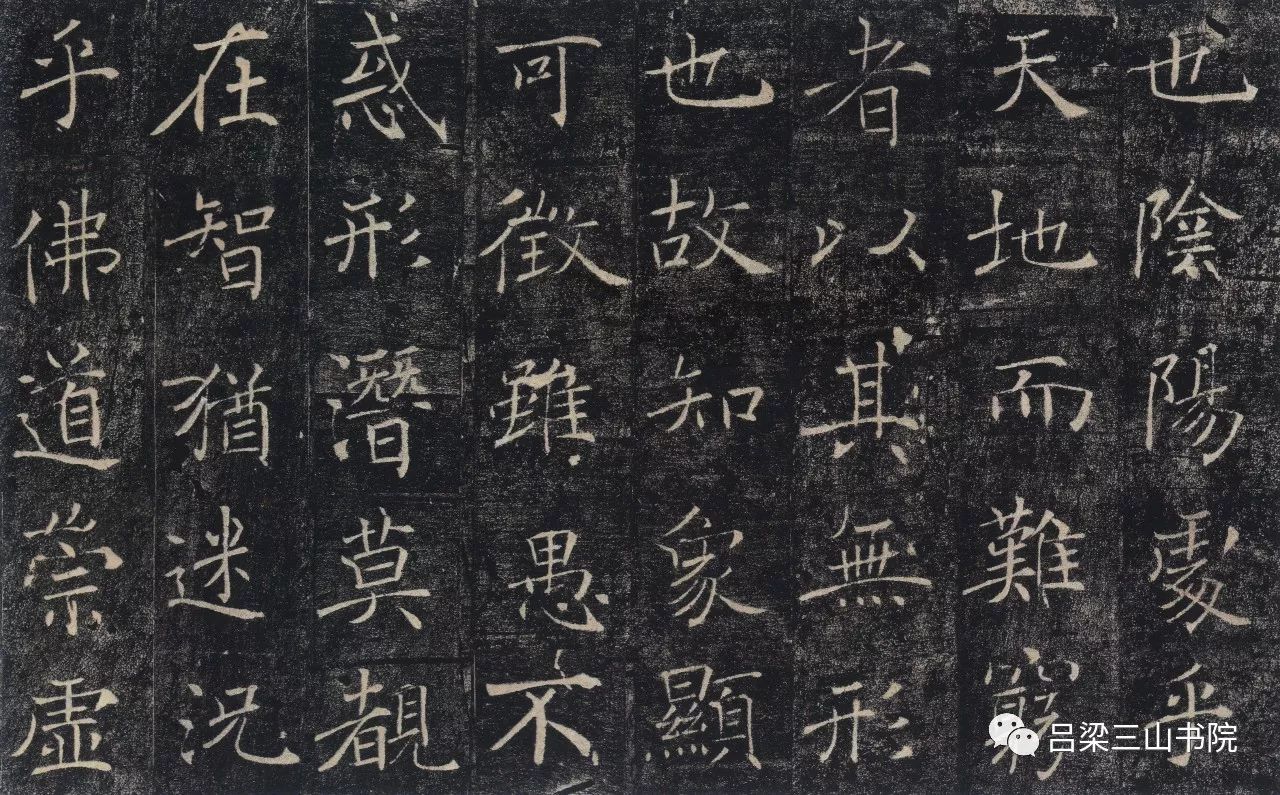 也陰陽處乎
天地而難窮
者以其無形
也故知象顯
可徵雖愚不
惑形潛莫覩
在智猶迷況
乎佛道崇虛
吕梁三山书院